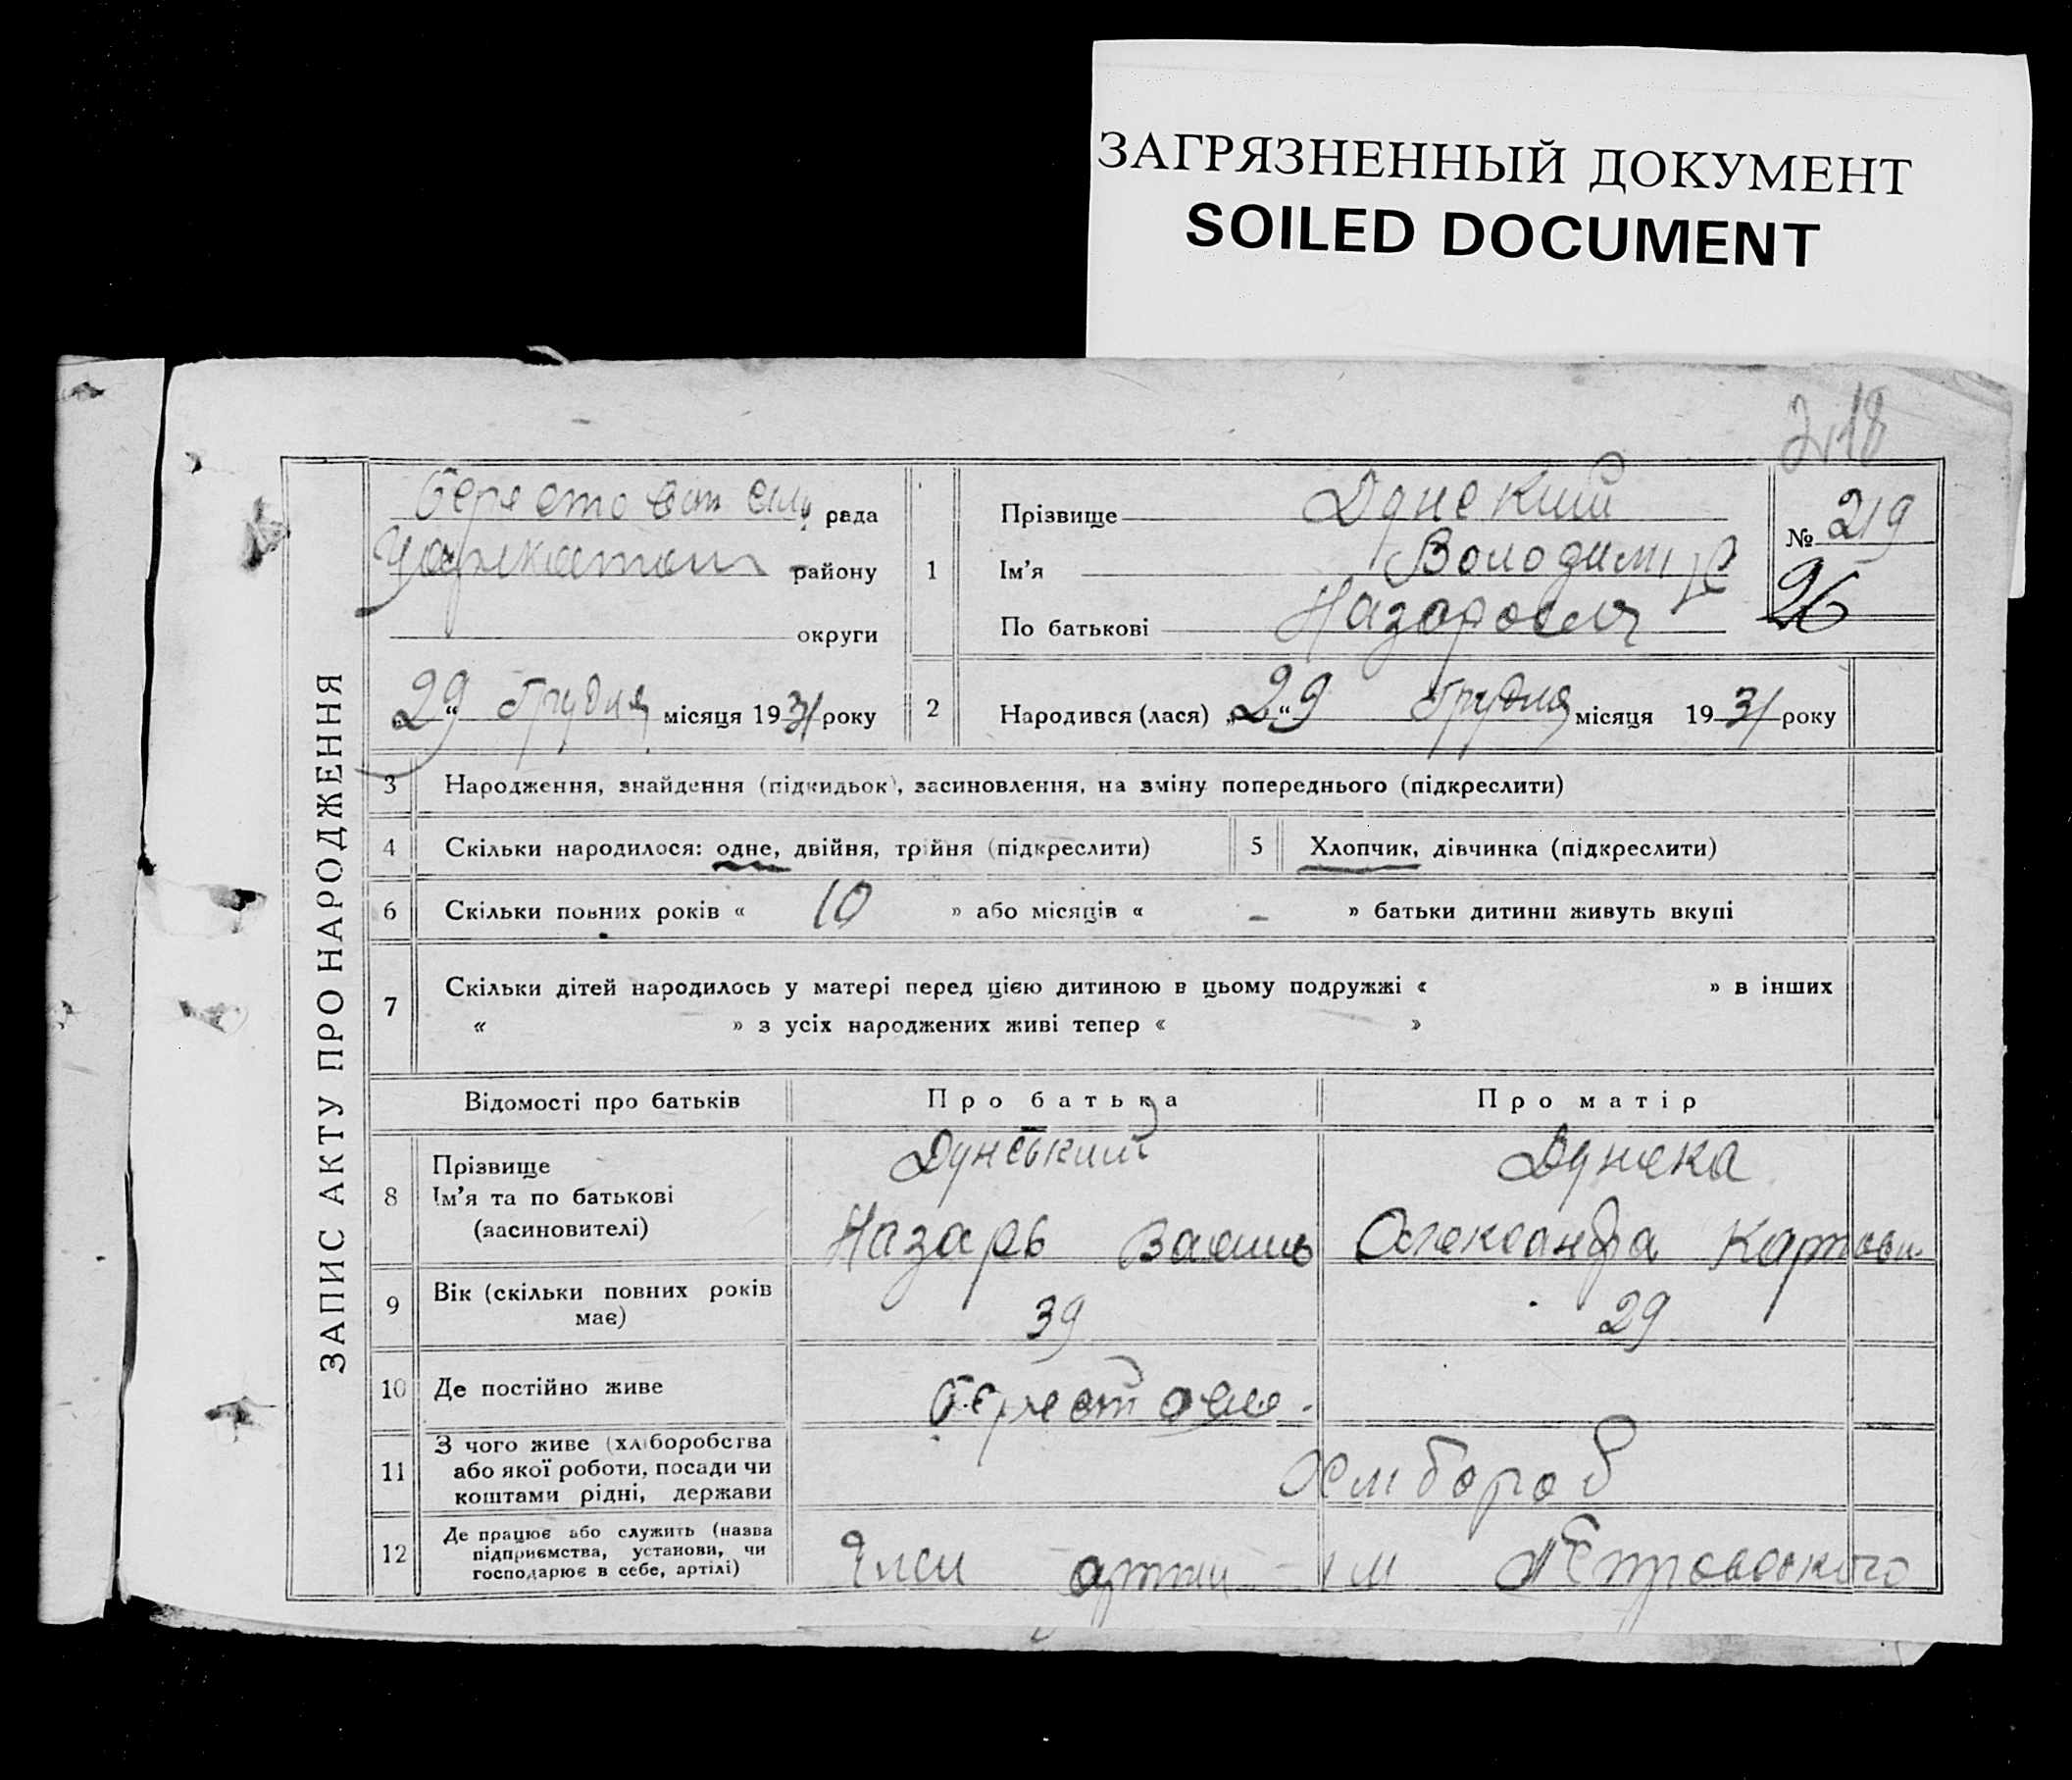 ЗАГРЯЗНЕННЫЙ ДОКУМЕНТ
SOILED DOCUMENT
ЗАПИС АКТУ ПРО НАРОДЖЕННЯ
рада
району
округи
29 грудня місяця 1931 року
1
Прізвище Дунский
Ім'я Володимир
По батькові
№ 219
26
2 Народився (лася) „29“ грудня місяця 1931 року
3 Народження, знайдення (підкидьок), засиновлення, на зміну попереднього (підкреслити)
4 Скільки народилося: одне, двійня, трійня (підкреслити)
5 Хлопчик, дівчинка (підкреслити)
6 Скільки повних років « 10 » або місяців « – » батьки дитини живуть вкупі
7 Скільки дітей народилось у матері перед цією дитиною в цьому подружжі « » в інших
« » з усіх народжених живі тепер « »
Відомості про батьків Про батька Про матір
8
Прізвище
Ім'я та по батькові
(засиновителі)
Дунський
Назарь
Дунска
Олександра
9 Вік (скільки повних років
має)
39 29
10 Де постійно живе
11 З чого живе (хліборобства
або якої роботи, посади чи
коштами рідні, держави
Хлібороб
12 Де працює або служить (назва
підприємства, установи, чи
господарює в себе, артілі)
Петровського